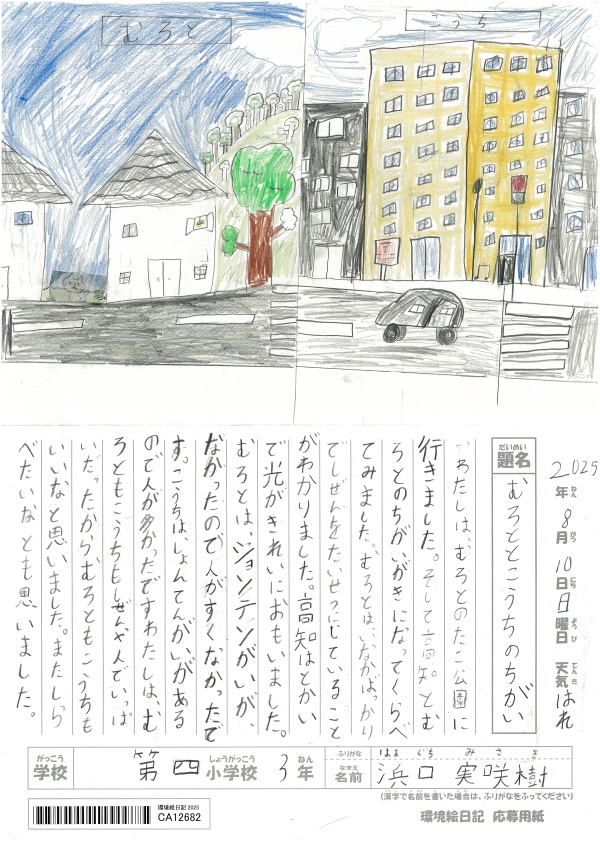 むろと
こうち
2025年ねん 8月がつ 10日にち 日曜日ようび 天気てんき はれ
題名だいめい むろととこうちのちがい
わたしは、むろとのたこ公園に
行きました。そして高知とむ
ろとのちがいがきになってくらべ
てみました。むろとは、いなかばっかり
でしぜんをたいせつにしていること
がわかりました。高知はとかい
で光がきれいにおもいました。
むろとは、ジョンテンがいが、
なかったので人がすくなかったで
す。こうちは、しょんてんがいがある
ので人が多かったですわたしは、む
ろともこうちもしぜんや人でいっぱ
いだったからむろともこうちも
いいなと思いました。またしら
べたいなとも思いました。
学校がっこう 第四小学校しょうがっこう 3年ねん ふりがな はま ぐち み さ き
名前なまえ 浜口実咲樹
(漢字で名前を書いた場合は、ふりがなをふってください)
環境絵日記 2025
CA12682
環境絵日記 応募用紙